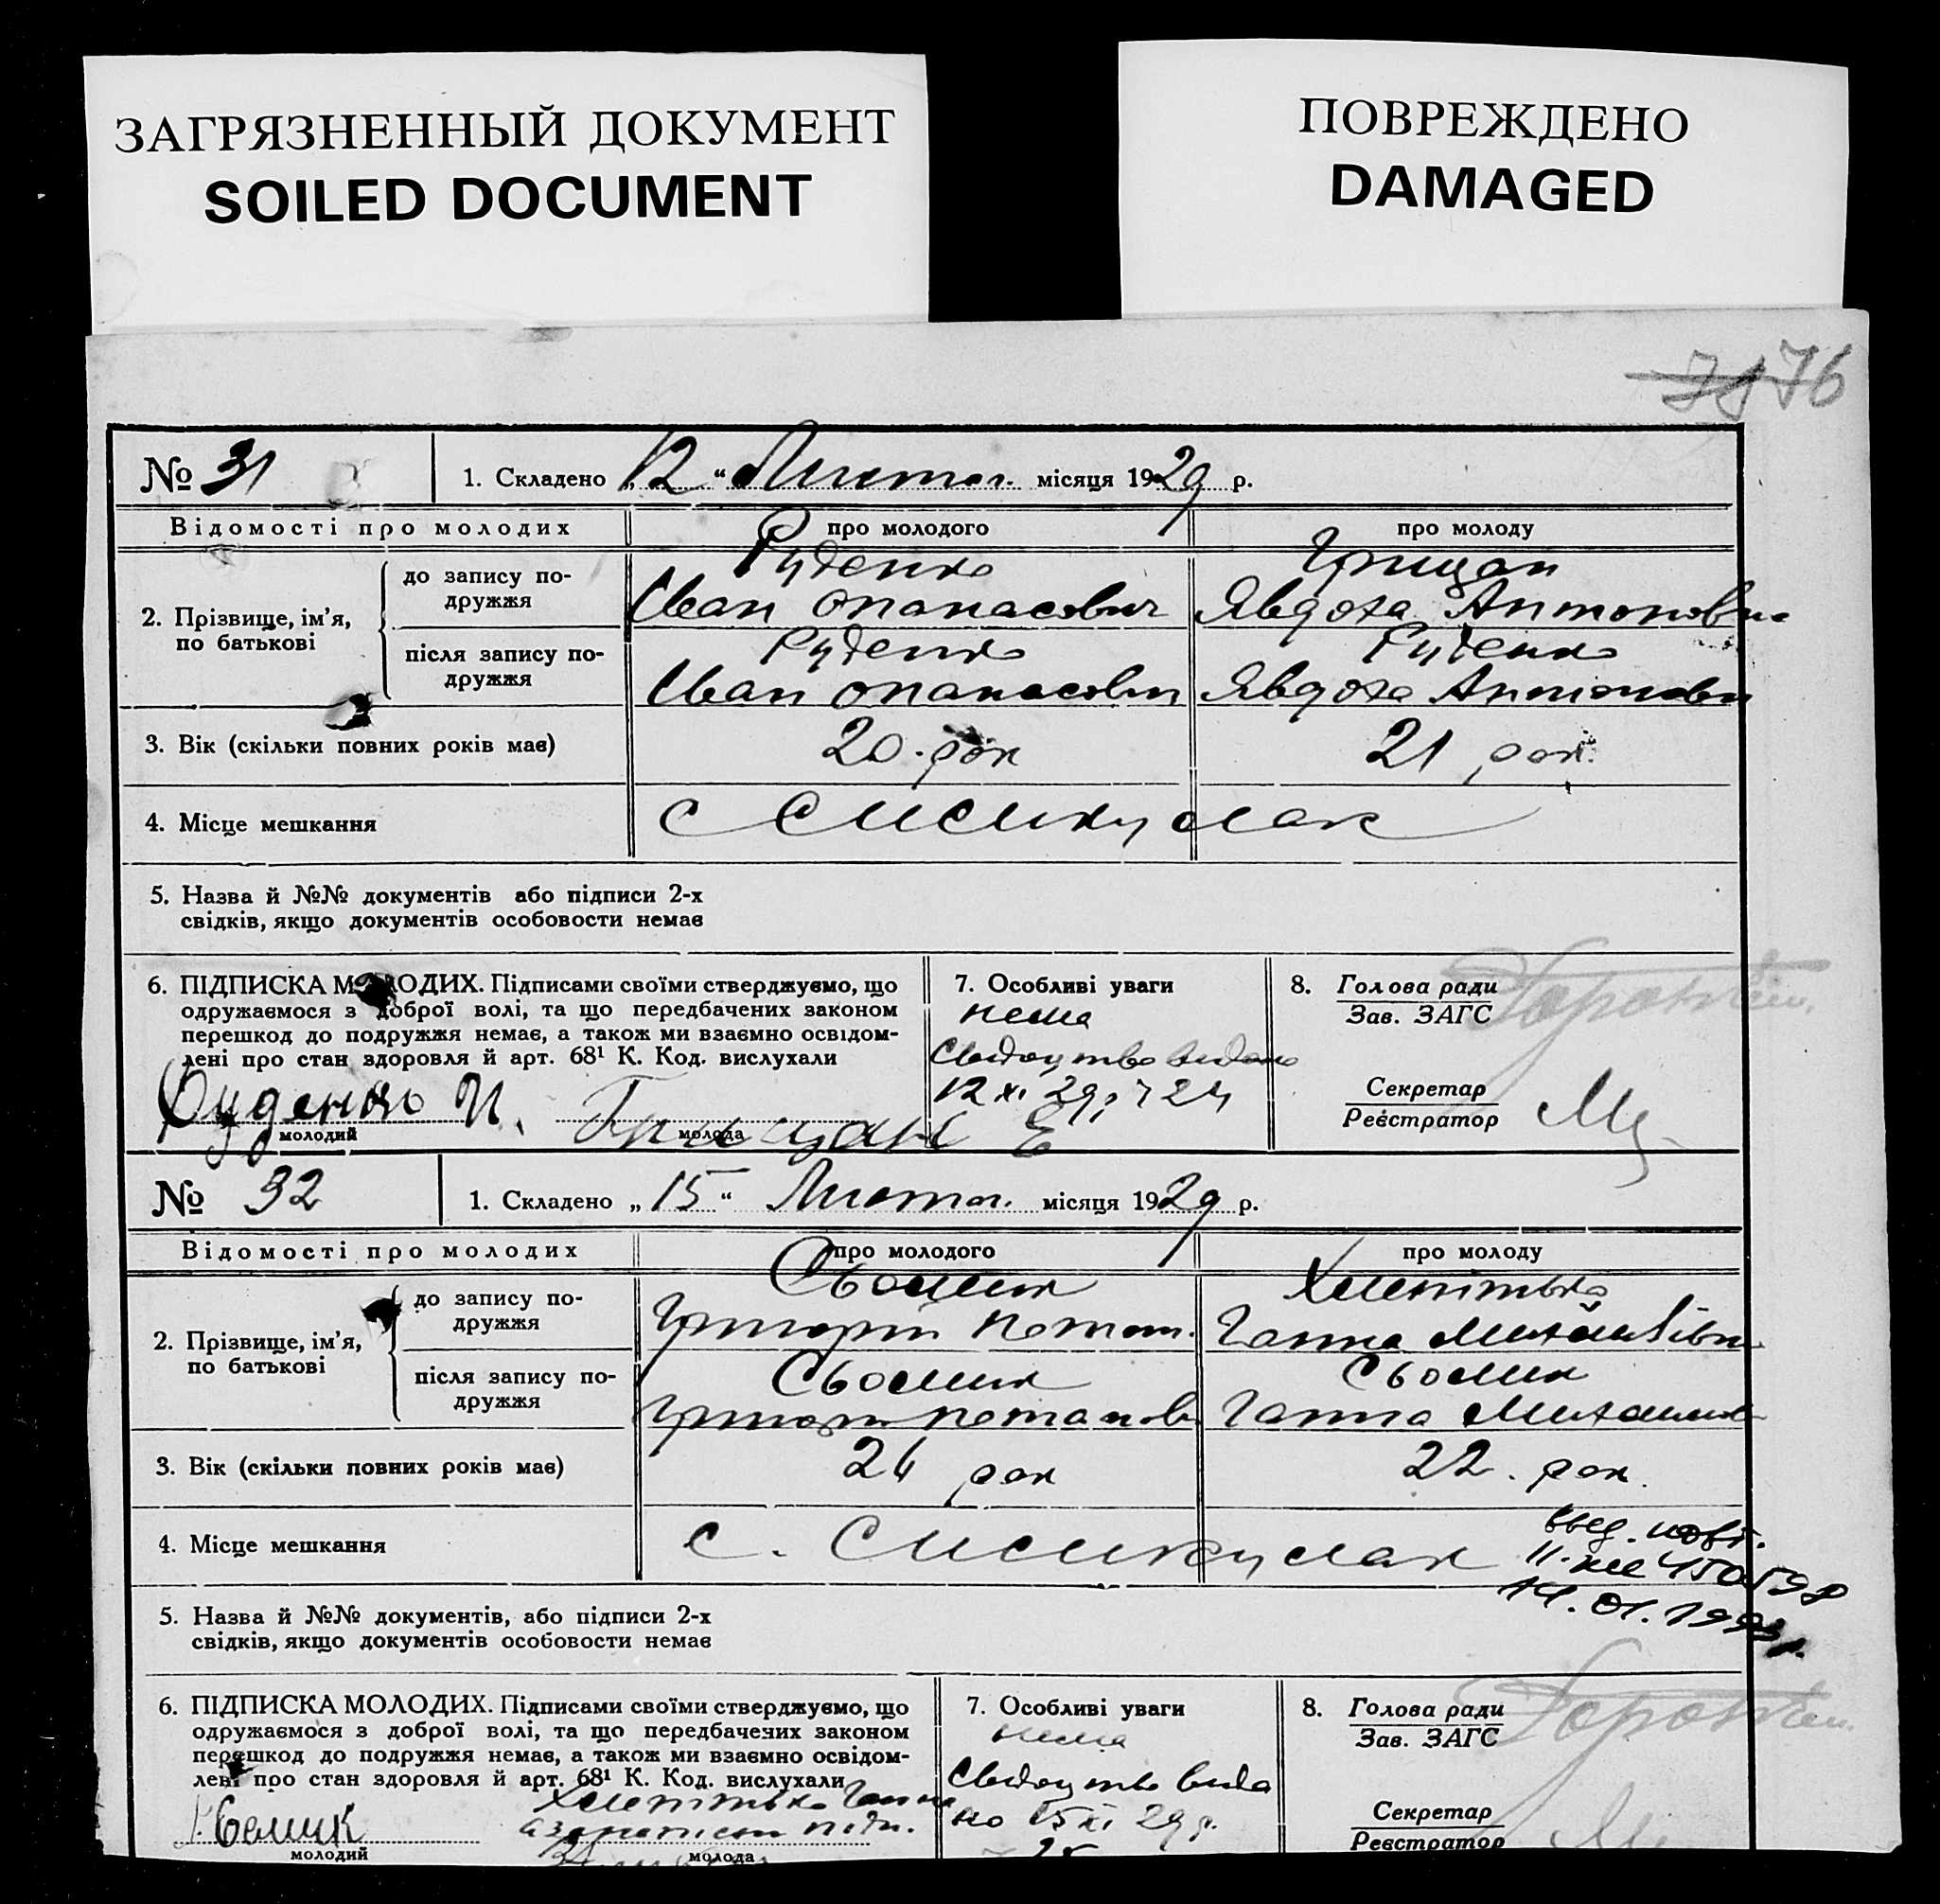 ЗАГРЯЗНЕННЫЙ ДОКУМЕНТ
SOILED DOCUMENT
ПОВРЕЖДЕНО
DAMAGED
76
№ 31
1. Складено „12“ Листоп. місяця 1929 р.
Відомості про молодих
про молодого
про молоду
2. Прізвище, ім’я, по батькові
до запису по-
дружжя
Руденко
Іван Опанасович
Грицан
Явдоха Антоновна
після запису по-
дружжя
Руденко
Іван Опанасович
Руденко
Явдоха Антоновн
3. Вік (скільки повних років має)
20 рок
21 рок.
4. Місце мешкання
с
5. Назва й №№ документів або підписи 2-х
свідків, якщо документів особовости немає
6. ПІДПИСКА МОЛОДИХ. Підписами своїми стверджуємо, що
одружаємося з доброї волі, та що передбачених законом
перешкод до подружжя немає, а також ми взаємно освідом-
лені про стан здоровля й арт. 68¹ К. Код. вислухали
Руденко И.
молодий
Грицан Е
молода
7. Особливі уваги
нема
Свідоцтво видано
12 XI 29 р 24
8. Голова ради
Зав. ЗАГС
Секретар
Реєстратор
№ 32
1. Складено „15“ Листоп. місяця 1929 р.
Відомості про молодих
про молодого
про молоду
2. Прізвище, ім’я,
по батькові
до запису по-
дружжя
Сьомик
Григорій Потап.
Ганна Михайлівн
після запису по-
дружжя
Сьомик
Григорій Потапов
Сьомик
Ганна
3. Вік (скільки повних років має)
24 рок
22. рок.
4. Місце мешкання
с.
14.01.1993г.
5. Назва й №№ документів, або підписи 2-х
свідків, якщо документів особовости немає
6. ПІДПИСКА МОЛОДИХ. Підписами своїми стверджуємо, що
одружаємося з доброї волі, та що передбачених законом
перешкод до подружжя немає, а також ми взаємно освідом-
лені про стан здоровля й арт. 68¹ К. Код. вислухали
молодий
молода
7. Особливі уваги
нема
Свідоцтво вида
но 15 XI 29 р.
25
8. Голова ради
Зав. ЗАГС
Секретар
Реєстратор